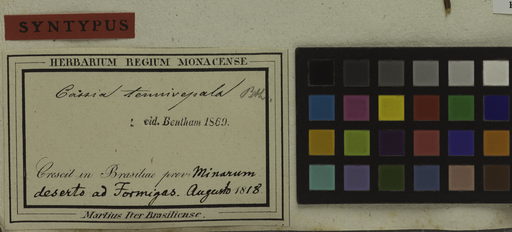 SYNTYPUS
HERBARIUM REGIUM MONACENSE
Cassia tenuisepala Bth.
vid. Bentham 1869.
Crescit in Brasiliae prov: Minarum
deserto ad Formigas. Augusto 1818
Martius Iter Brasiliense.